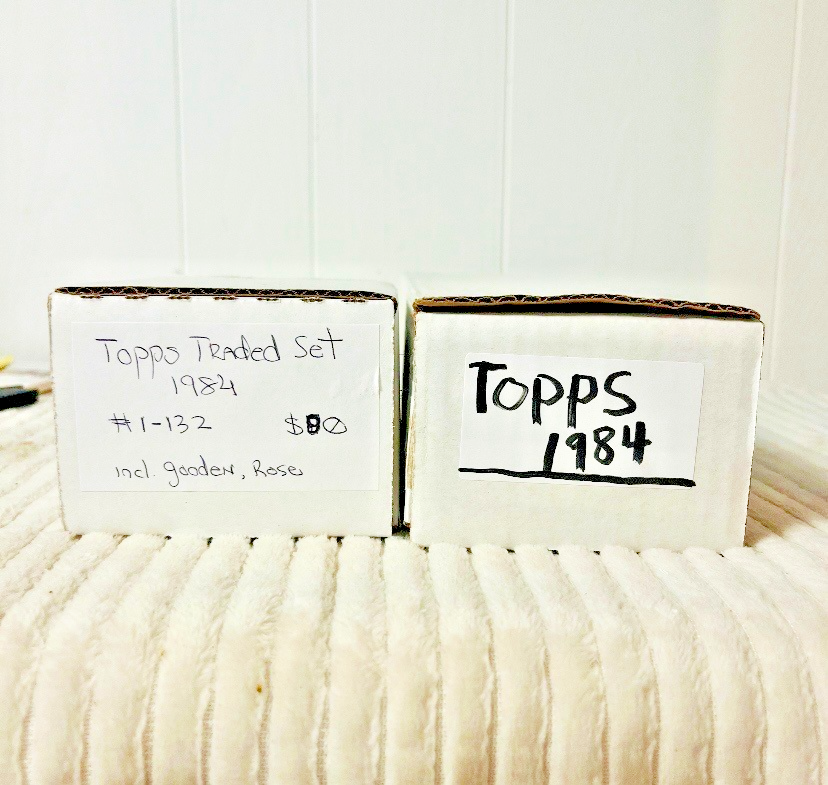 Topps Traded Set
1984
#1-132 $80
incl. gooden, Rose,
TOPPS
1984